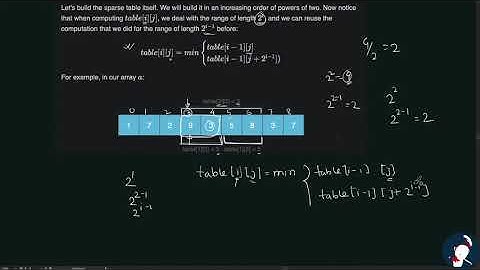 Let's build the sparse table itself. We will build it in an increasing order of powers of two. Now notice
that when computing table[i][j], we deal with the range of length 2^i and we can reuse the
computation that we did for the range of length 2^{i-1} before:
table[i][j] = min { table[i-1][j]
table[i-1][j+2^{i-1}]
For example, in our array a:
0 1 2 3 4 5 6 7 8
1 7 2 9 3 5 8 3 7
4/2 = 2
2^2 = 4
2^{2-1} = 2
2^2
2^{2-1} = 2
2^1
2^{2-1}
2^{i-1}
table[i][j] = min { table[i-1] [j]
table[i-1] [j+2^{i-1}]